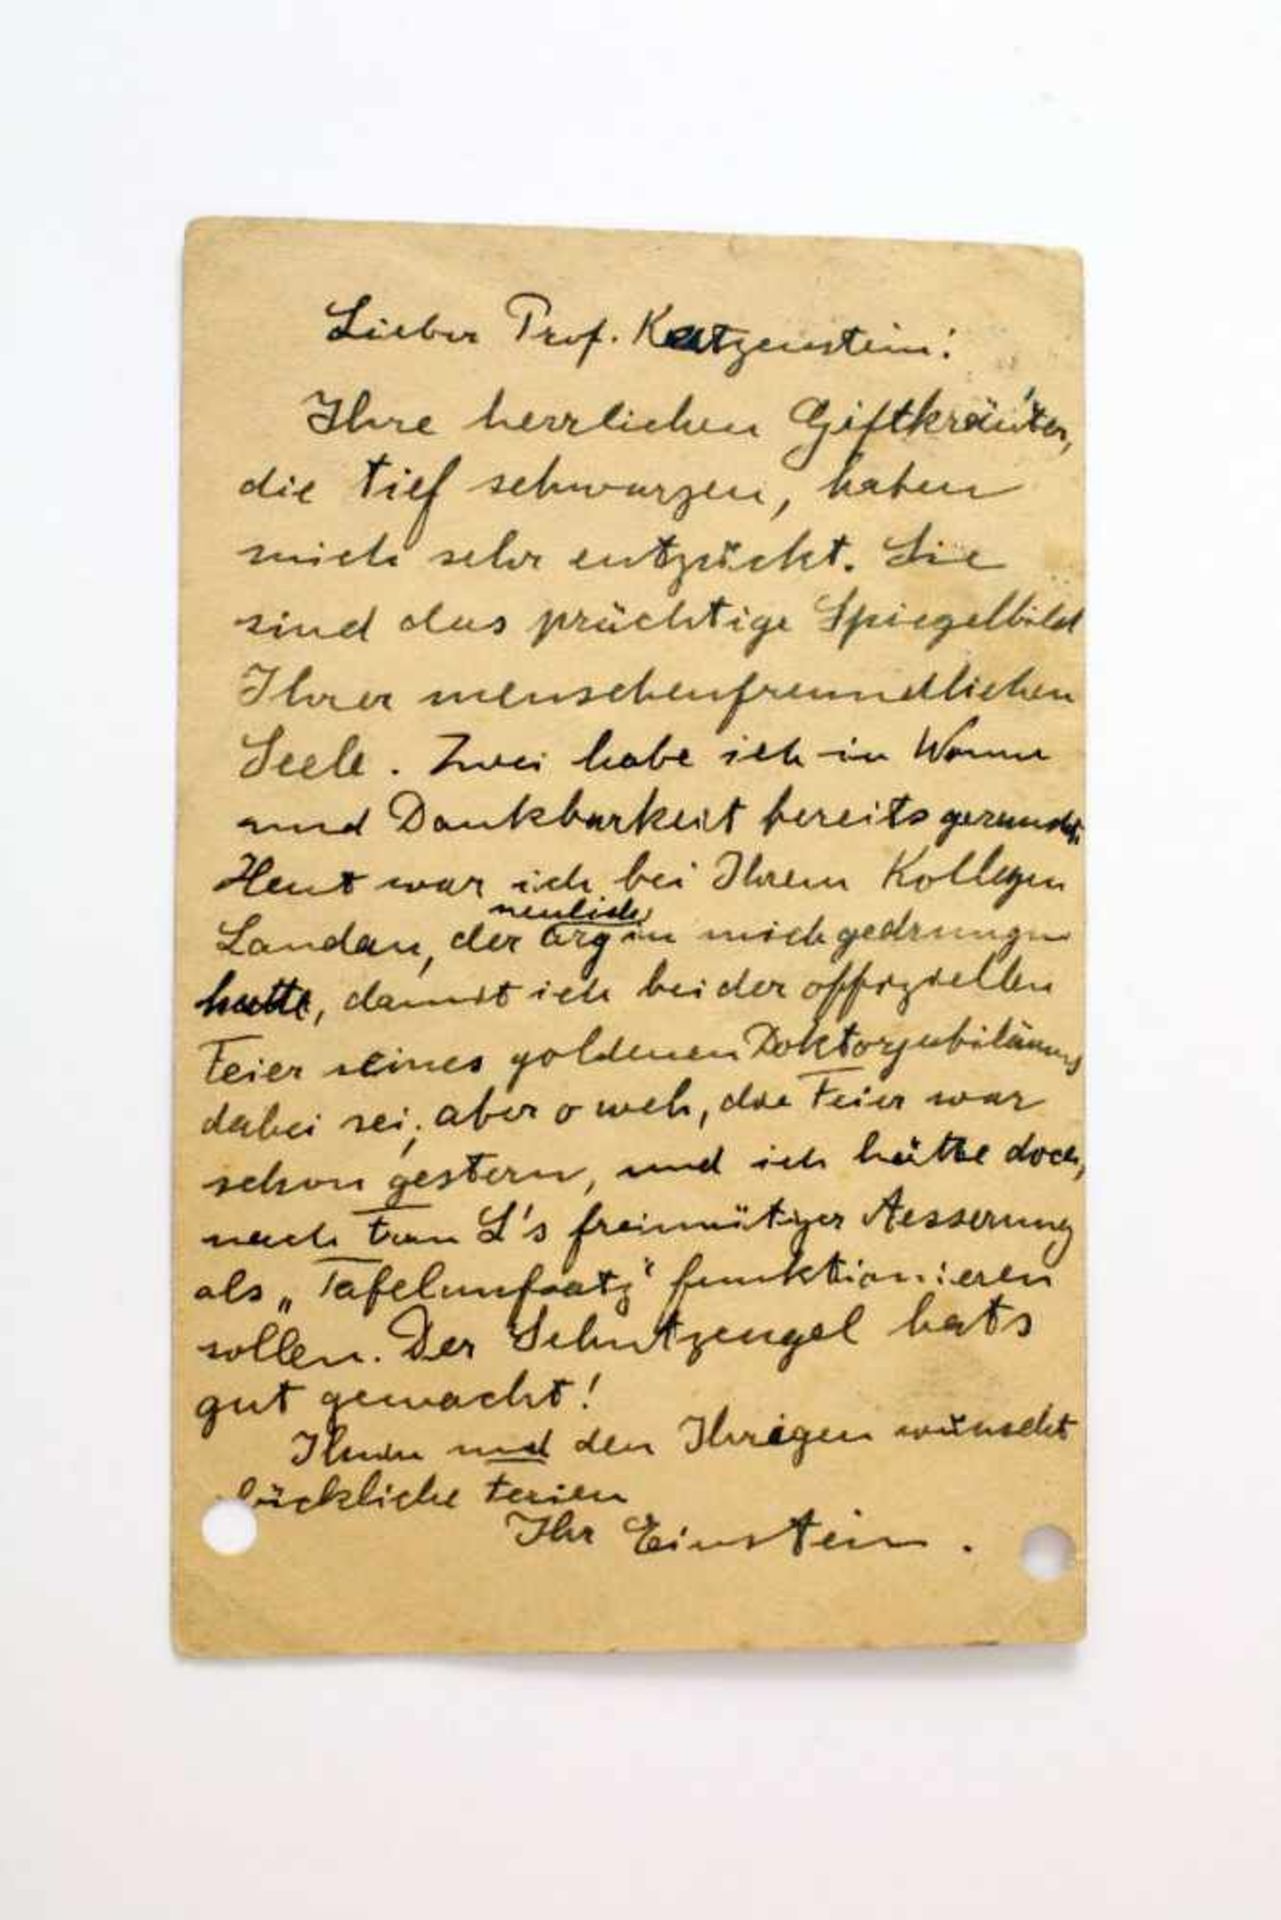 Lieber Prof. Katzenstein!
Ihre herrlichen Giftkräuter,
die tief schwarzen, haben
mich sehr entzückt. Sie
sind das prächtige Spiegelbild
Ihrer menschenfreundlichen
Seele. Zwei habe ich in Wonne
und Dankbarkeit bereits geraucht.
Heut war ich bei Ihrem Kollegen
neulich
Landau, der arg in mich gedrungen
hatte, damit ich bei der offiziellen
Feier seines goldenen Doktorjubiläums
dabei sei; aber o weh, die Feier war
schon gestern, und ich hätte doch,
nach Frau L's freimütiger Aesserung
als „Tafelaufsatz" funktionieren
sollen. Der Schutzengel hats
gut gemacht!
Ihnen und den Ihrigen wünscht
lückliche Ferien
Ihr Einstein.